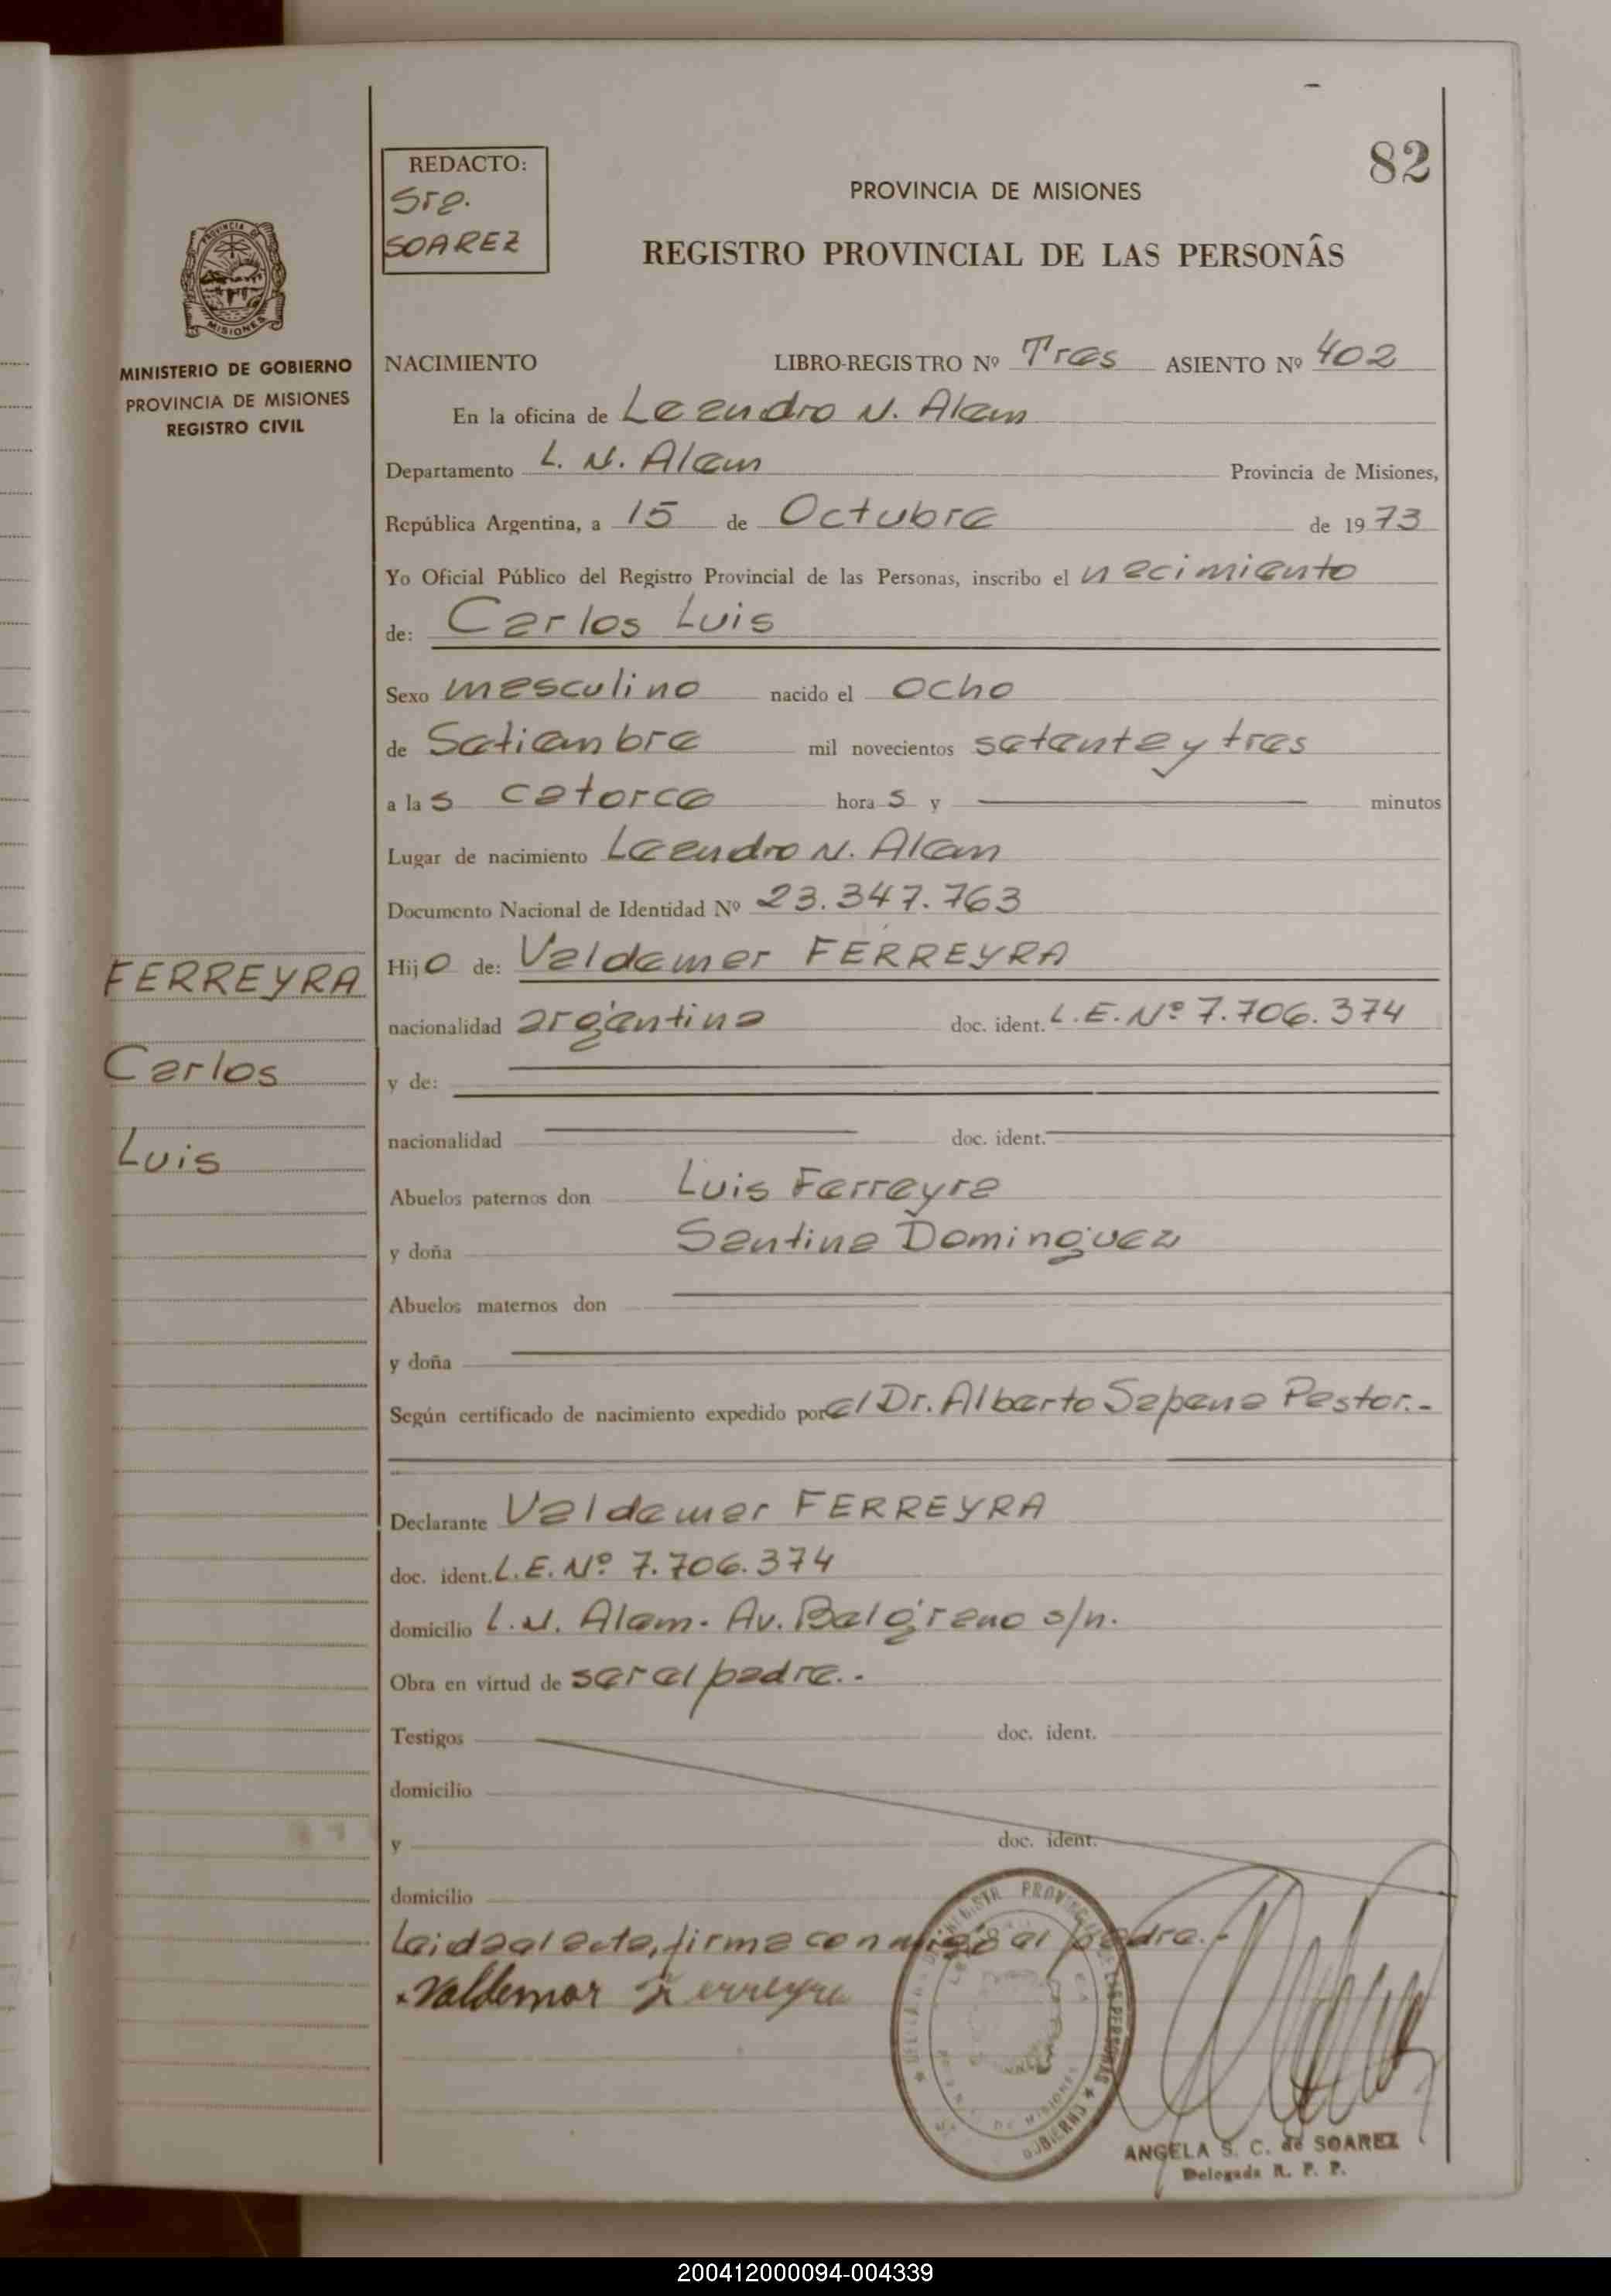 82
REDACTO:
Sra.
SOAREZ
PROVINCIA DE MISIONES
REGISTRO PROVINCIAL DE LAS PERSONAS
MISIONES
MINISTERIO DE GOBIERNO
PROVINCIA DE MISIONES
REGISTRO CIVIL
NACIMIENTO LIBRO-REGISTRO Nº Tres ASIENTO Nº 402
En la oficina de Leandro N. Alem
Departamento L. N. Alem Provincia de Misiones,
República Argentina, a 15 de Octubre de 1973
Yo Oficial Público del Registro Provincial de las Personas, inscribo el nacimiento
de: Carlos Luis
Sexo masculino nacido el ocho
de Setiembre mil novecientos setenta y tres
a las catorce horas y minutos
Lugar de nacimiento Leandro N. Alem
Documento Nacional de Identidad Nº 23.347.763
Hijo de: Valdemar FERREYRA
nacionalidad argentina doc. ident. L.E. Nº 7.706.374
y de:
nacionalidad doc. ident.
Abuelos paternos don Luis Ferreyra
y doña Santina Dominguez
Abuelos maternos don
y doña
Según certificado de nacimiento expedido por el Dr. Alberto Sapena Pastor.-
Declarante Valdemar FERREYRA
doc. ident. L.E. Nº 7.706.374
domicilio L.N. Alem- Av. Belgrano s/n.
Obra en virtud de ser el padre.-
Testigos doc. ident.
domicilio
y doc. ident.
domicilio
Leida el acta, firma conmigo el padre.-
Valdemar Ferreyra
FERREYRA
Carlos
Luis
ANGELA S. C. de SOAREZ
Delegada R. P. P.
200412000094-004339